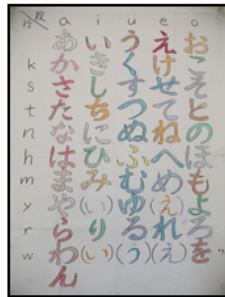 行 段 a i u e o
あ い う え お
k か き く け こ
s さ し す せ そ
t た ち つ て と
n な に ぬ ね の
h は ひ ふ へ ほ
m ま み む め も
y や (い) ゆ (え) よ
r ら り る れ ろ
w わ (い) (う) (え) を
ん